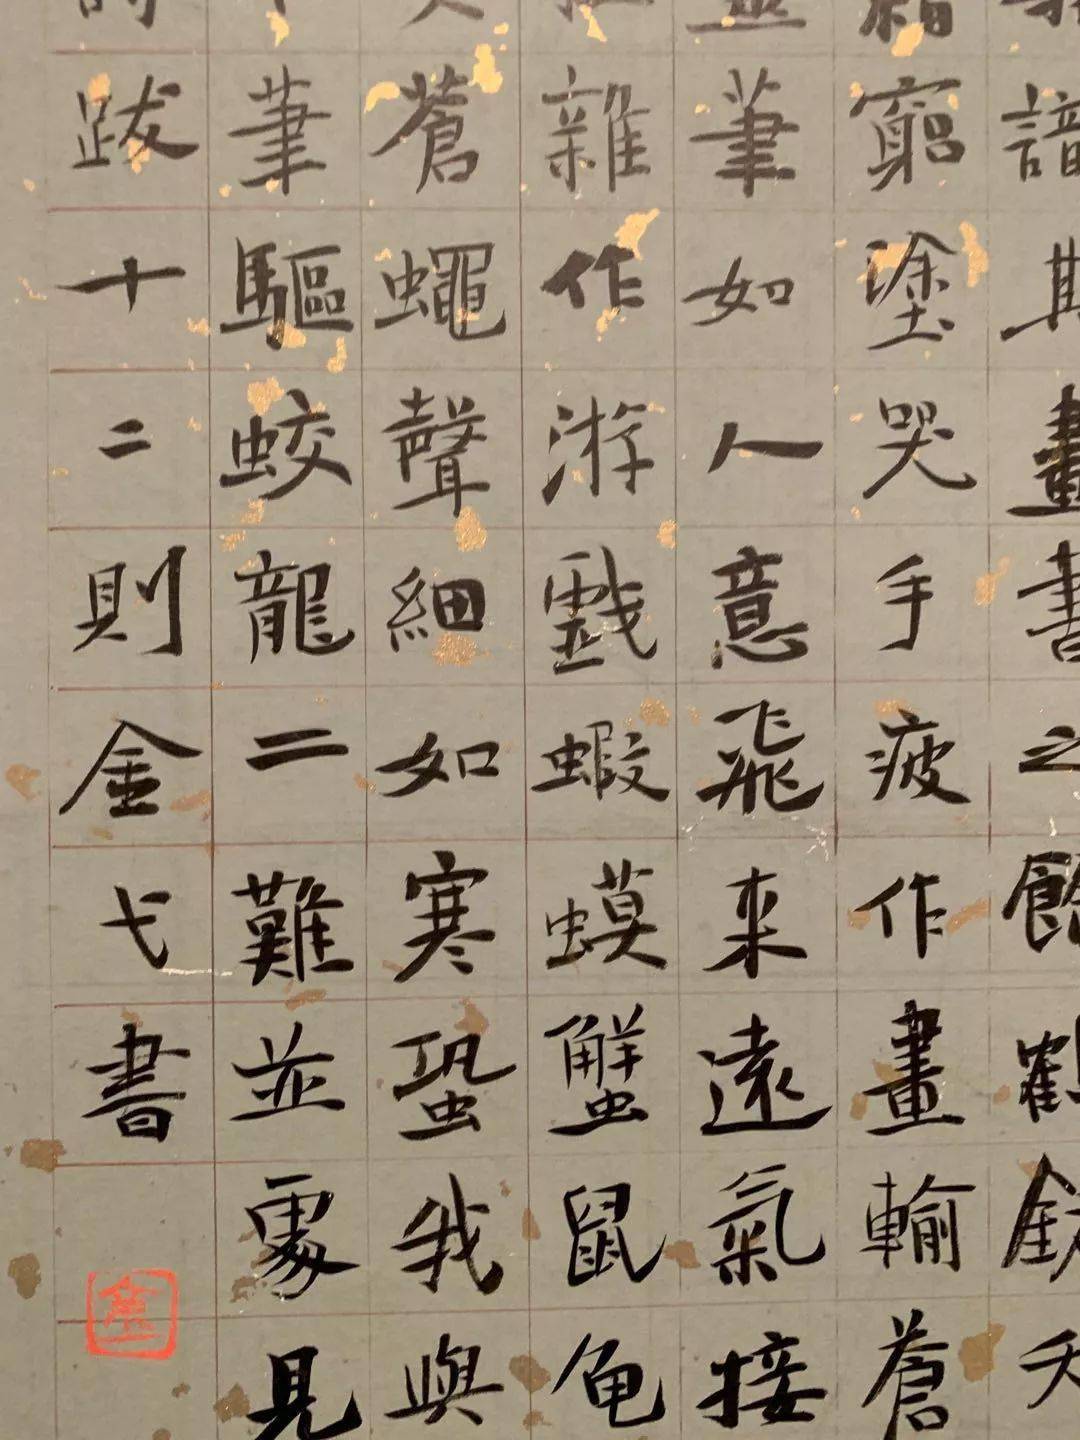 諳斯畫書之餘鶴銘天
窮塗哭手疲作畫輸蒼
筆如人意飛來遠氣接
雜作游戲蝦蟆蟹鼠龟
蒼蠅聲細如寒蛩我與
筆驅蛟龍二難並處見
跋十二則金弋書